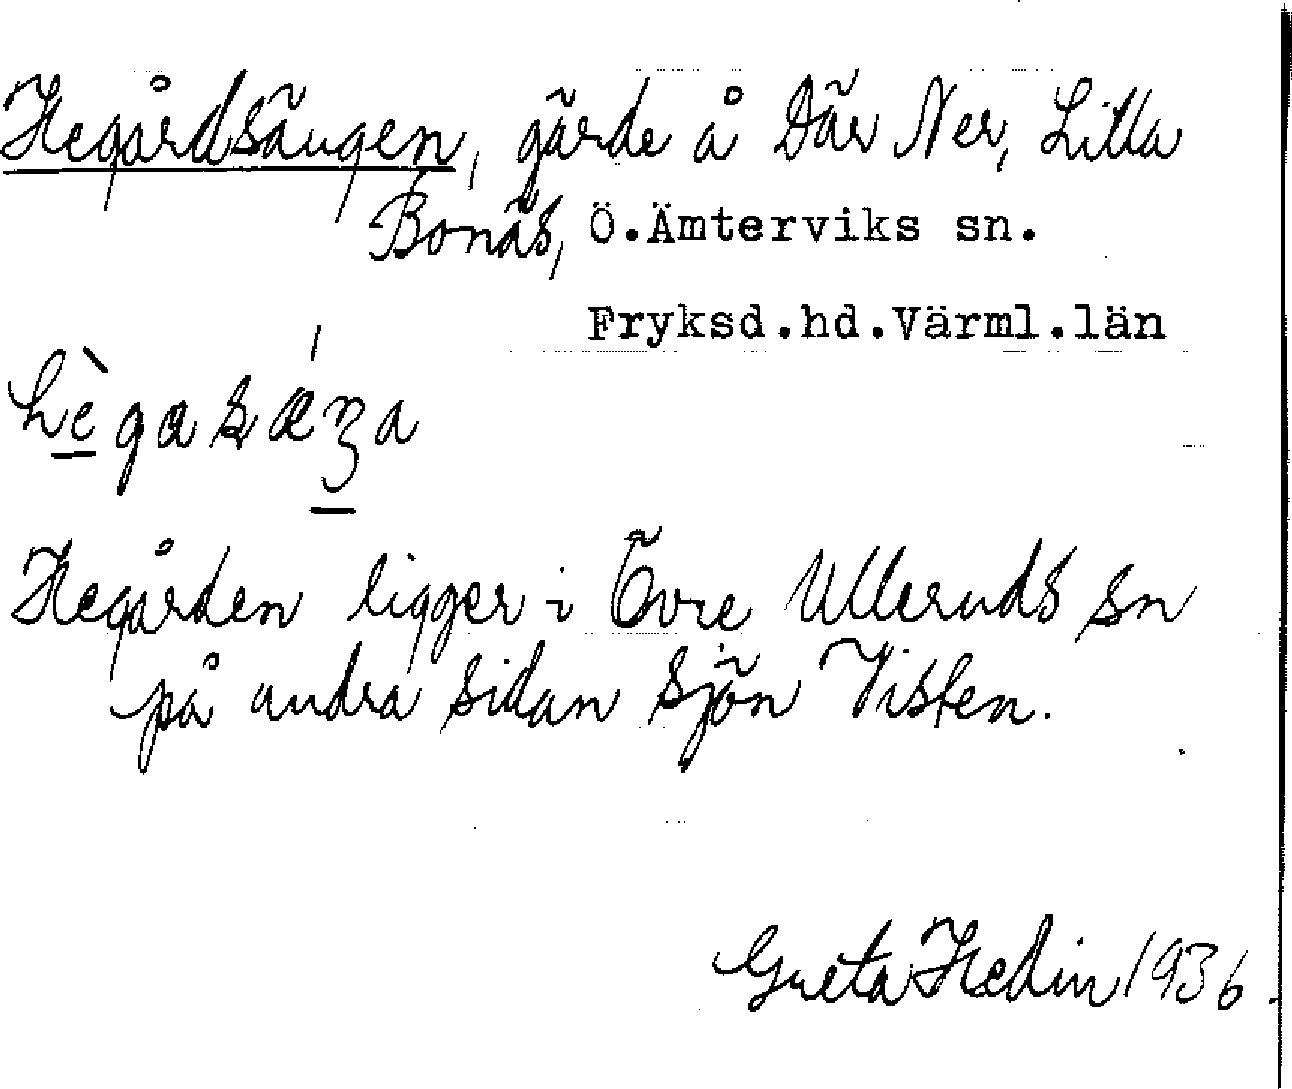 Hegårdsängen, gärde å Där Ner, Lilla
Bonäs, Ö.Ämterviks sn.
Fryksd.hd.Värml.län
Hegården ligger i Övre Ulleruds sn
på andra sidan sjön Visten.
Greta Hedin 1936.